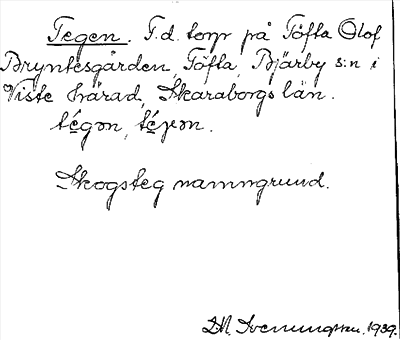 Tegen. F.d. torp på Töfta Olof
Bryntesgården, Töfta, Bjärby s:n i
Viste härad, Skaraborgs län.
tégən, téɣən.
Skogsteg namngrund.
Svenungsson. 1939.